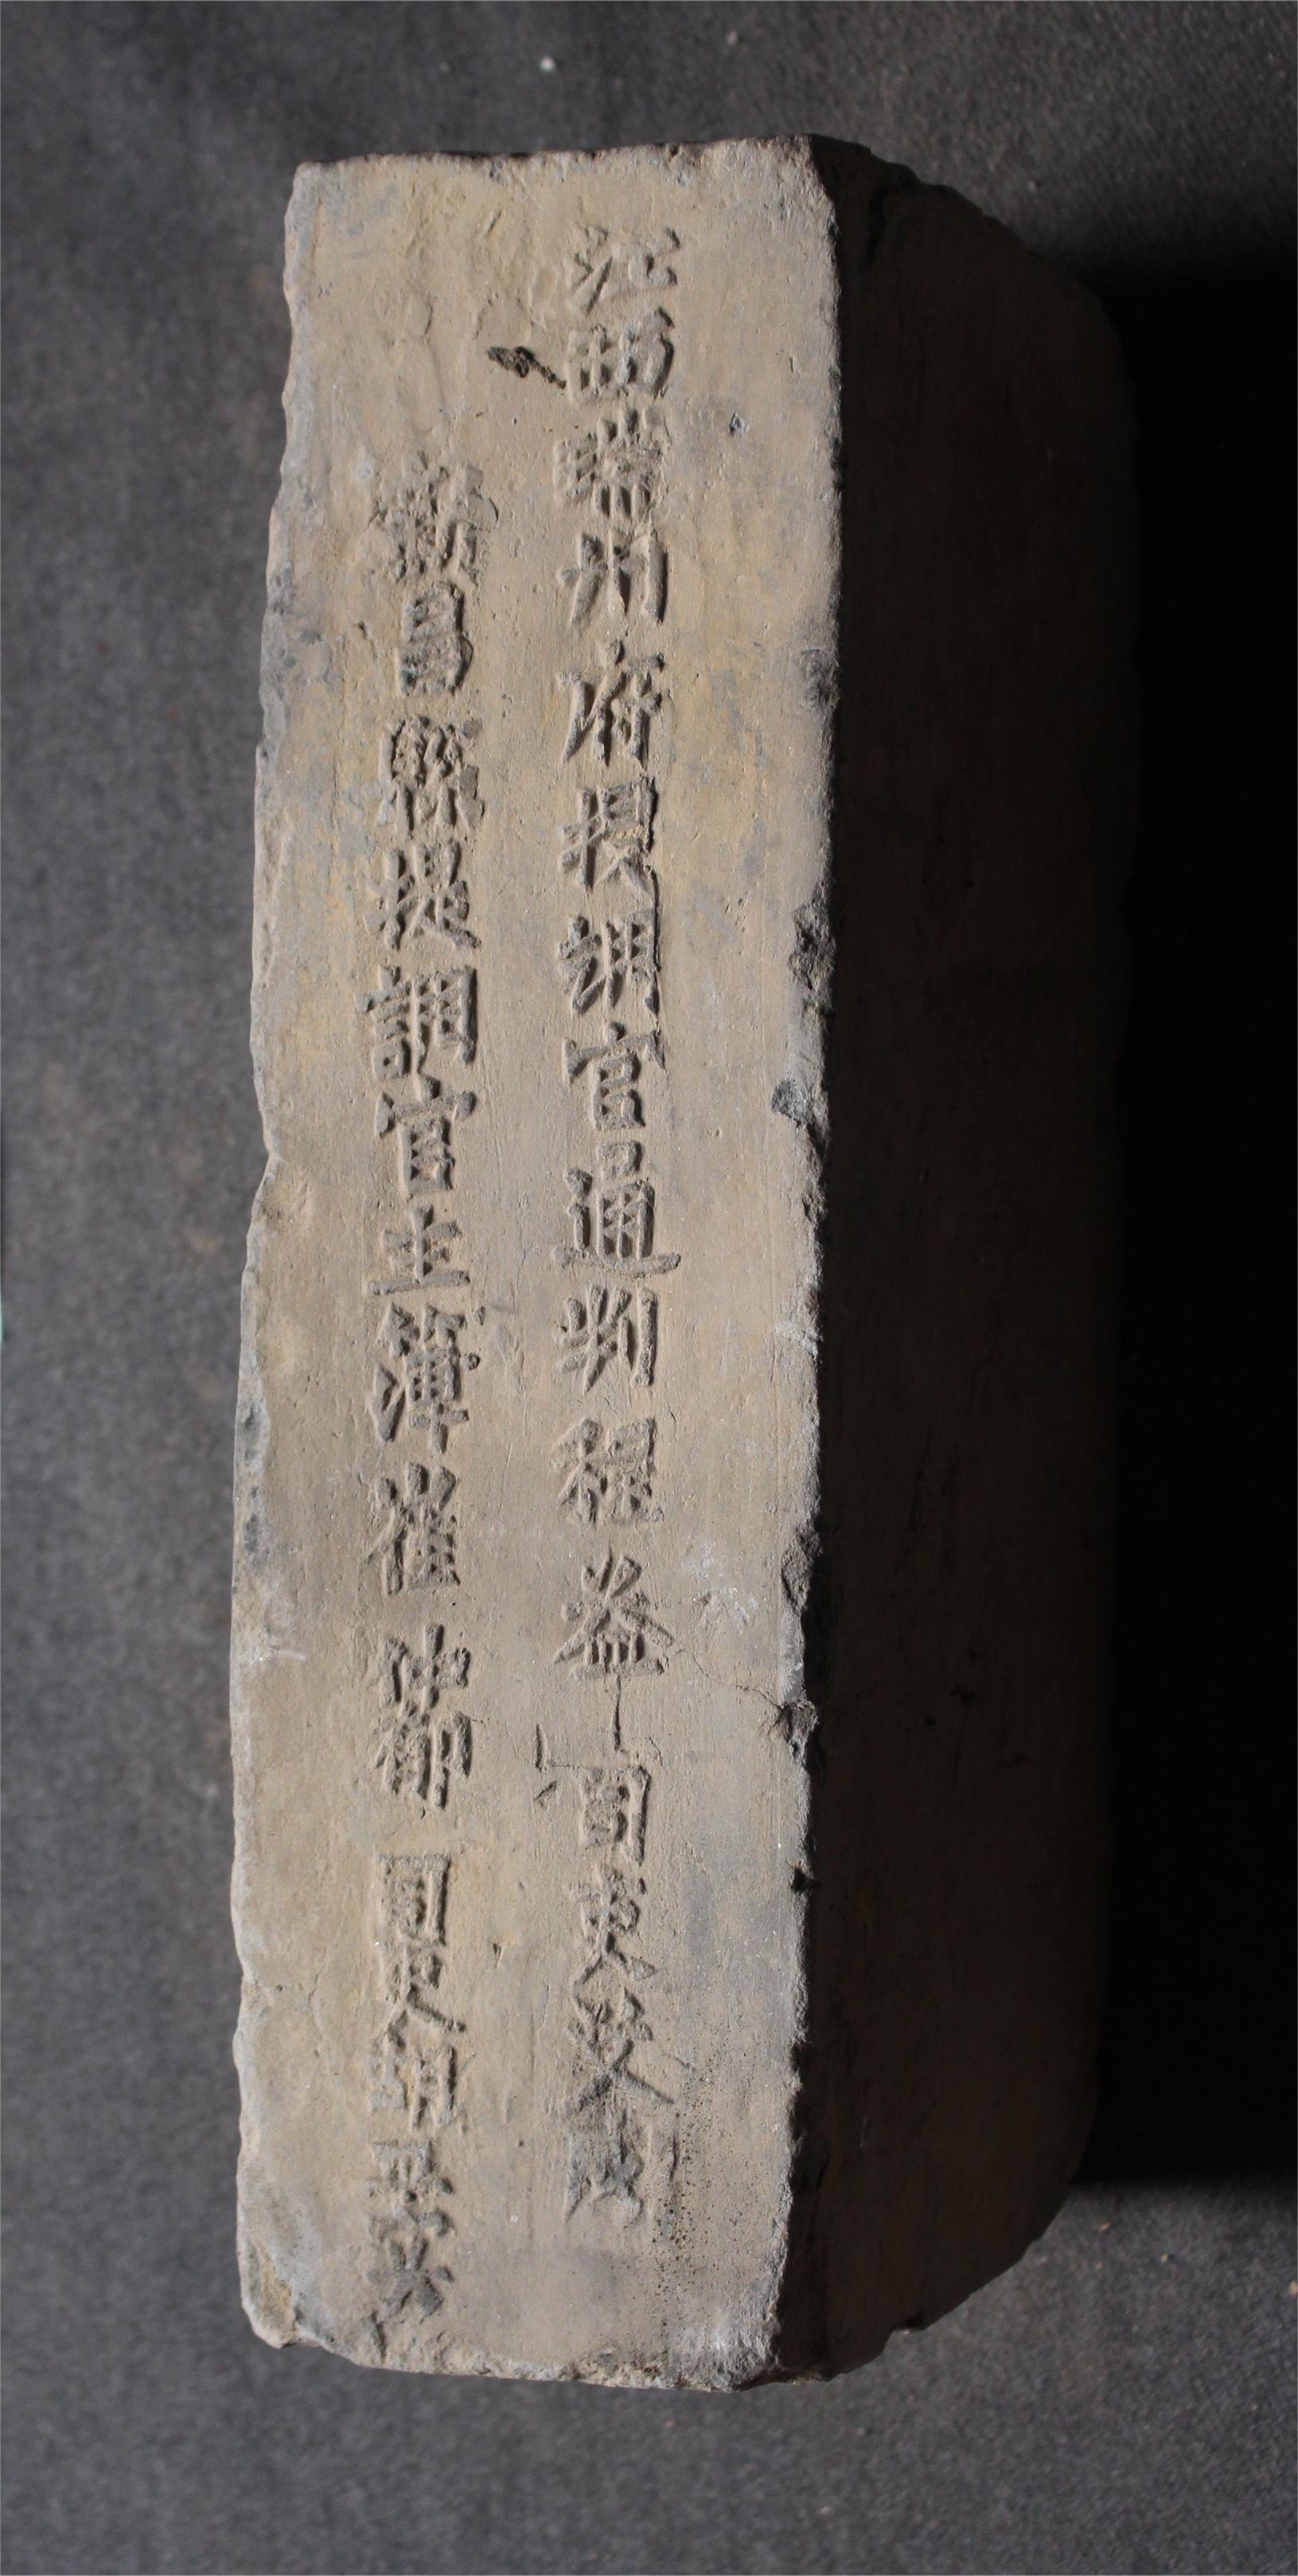 江西瑞州府提調官通判程益 司吏艾
新昌縣提調官主簿崔仲郁 司吏胡